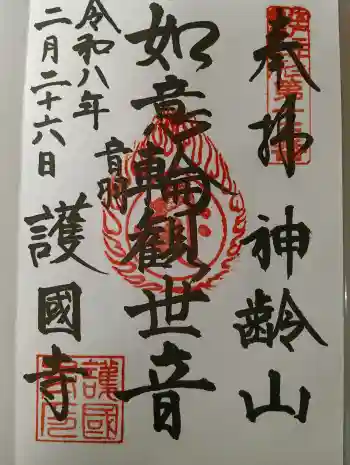 奉拝
神齢山
如意輪観世音
音羽
護國寺
令和八年
二月二十六日
護國